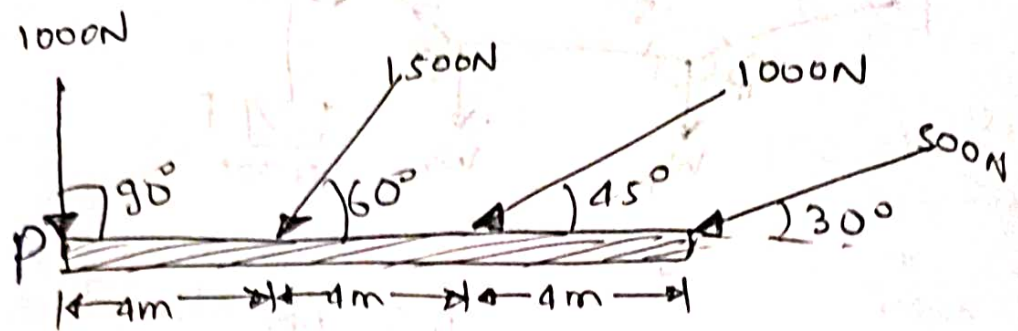 1000N
1500N
1000N
500N
90°
60°
45°
30°
P
4m
4m
4m